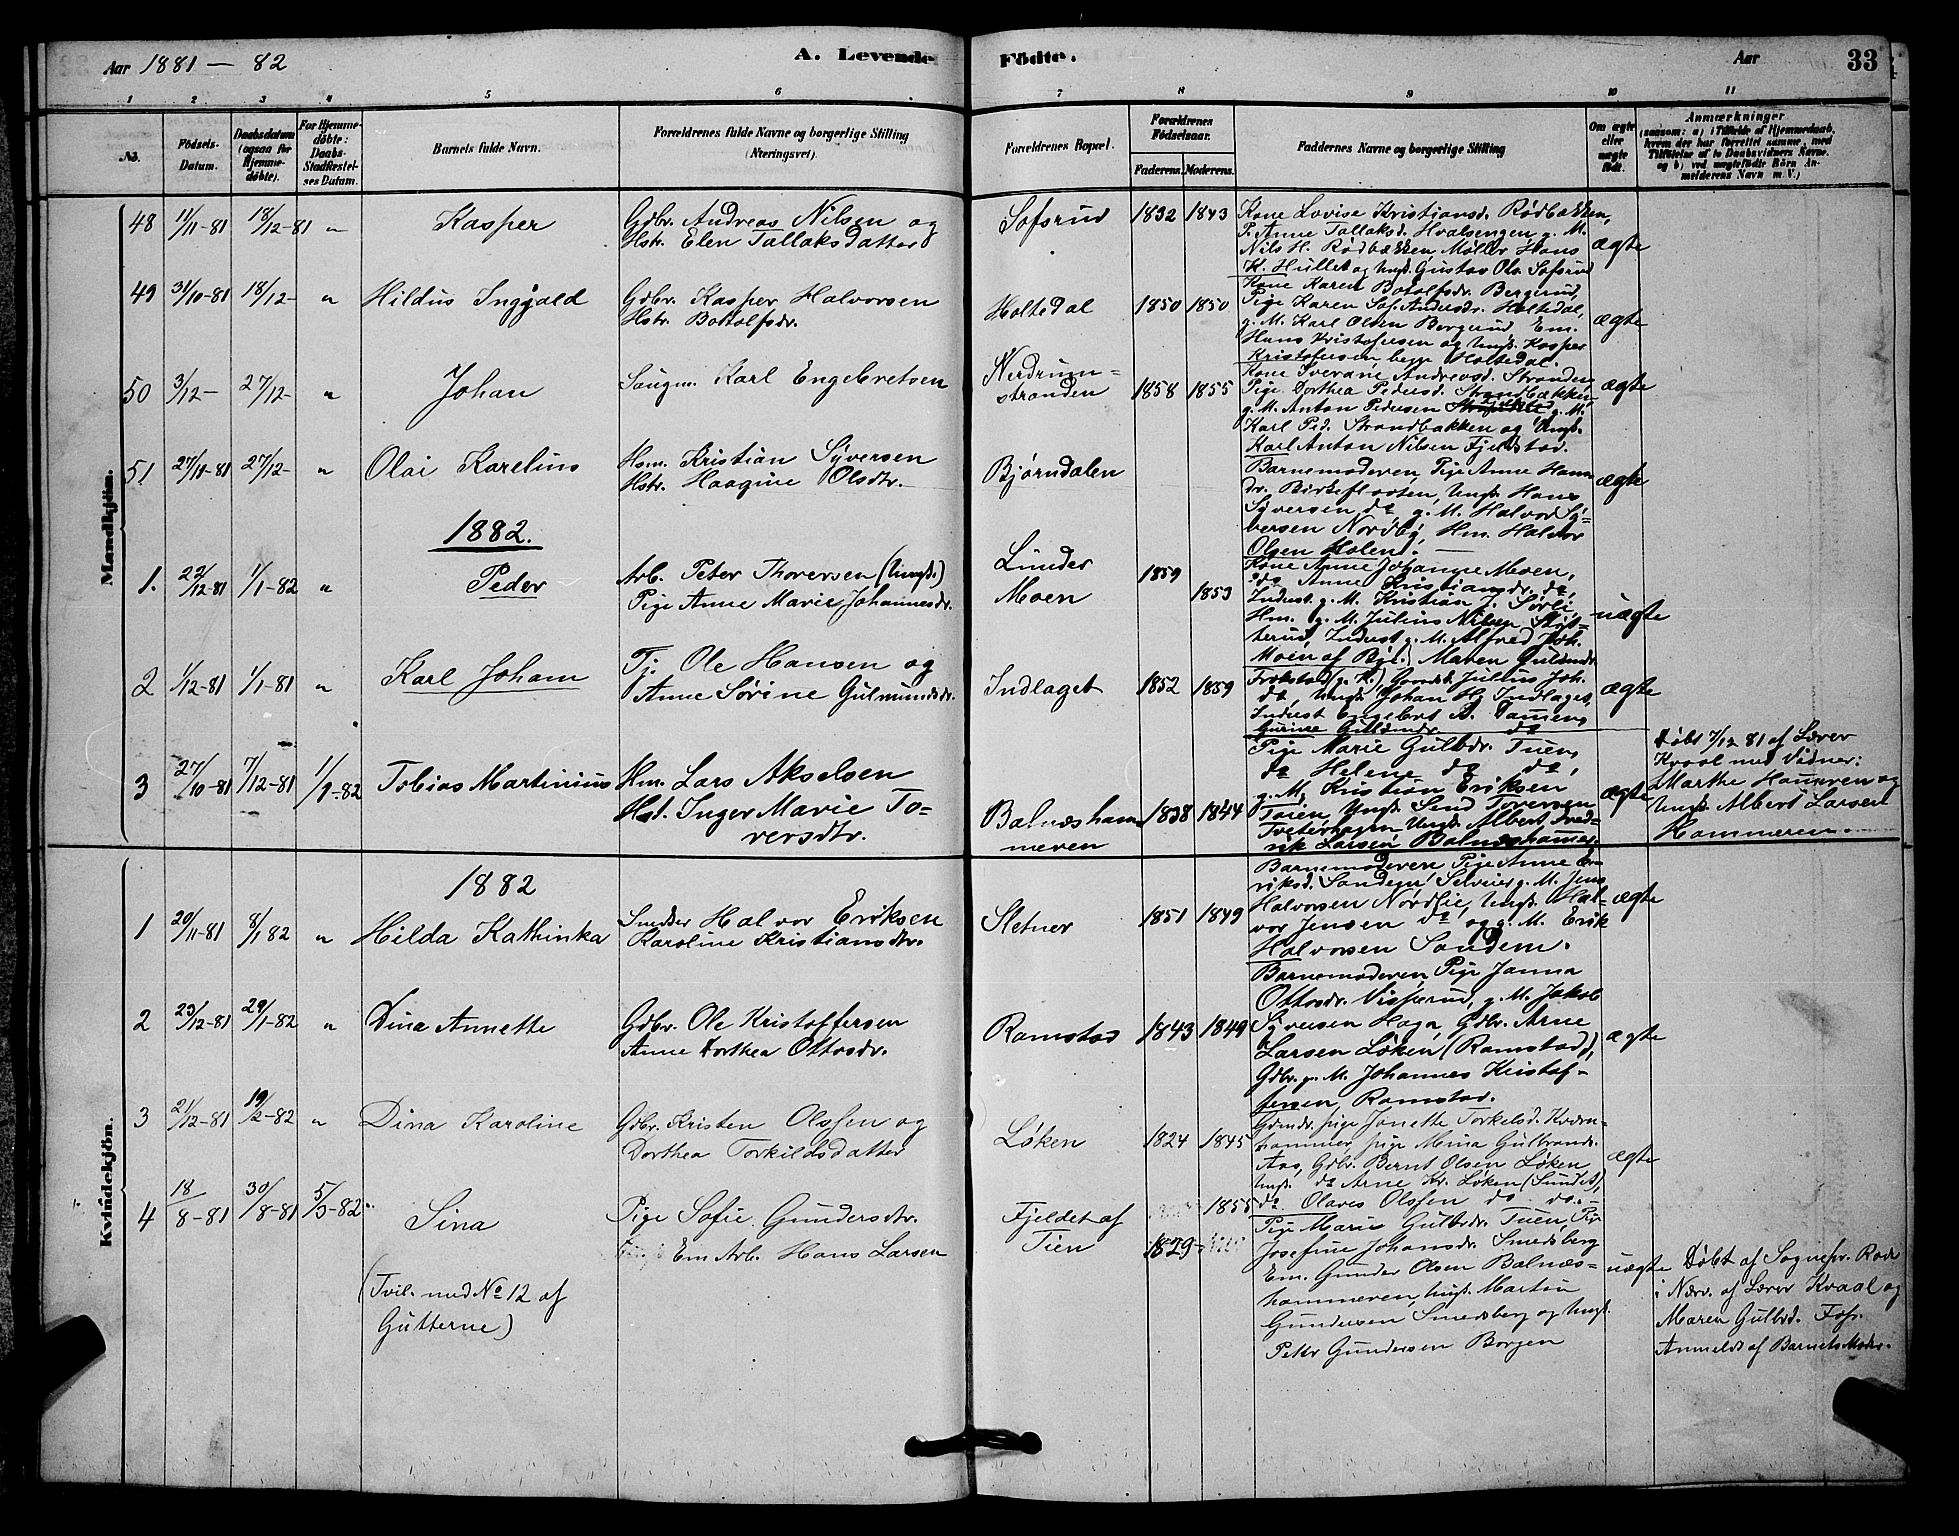 Aar 1881 – 82
A. Levende
Födte.
Aar
33
1 2 3 4 5 6 7 8 9 10 11
No.
Födsels-
Datum.
Daabsdatum
(ogsaa for
Hjemme-
döbte).
For Hjemme-
döbte:
Daabs-
Stadfæstel-
ses Datum.
Barnets fulde Navn.
Forældrenes fulde Navne og borgerlige Stilling
(Næringsvei).
Forældrenes Bopæl.
Forældrenes
Födselsaar.
Faderens. Moderens.
Faddernes Navne og borgerlige Stilling
Om ægte
eller
uægte
födt.
Anmærkninger
(saasom: a) i Tilfælde af Hjemmedaab,
hvem der har forrettet samme, med
Tilföielse af to Daabsvidners Navne,
og b) ved uægtefödte Börn An-
melderens Navn m. V.)
Mandkjön.
48 11/11-81 18/12-81 "
Kasper
Gdbr. Andreas Nilsen og
Hstr. Elen Tallaksdatter
Sofsrud
1832 1843
Kone Lovise Kristiansd. Rødbækken,
P. Anne Tallaksd. Hvalsengen g. M.
Nils H. Rødbækken Møller Hans
K. Hullet og Ungk. Gustav Ols. Sofsrud
ægte
49 31/10-81 18/12- "
Hildus Inggald
Gdbr. Kasper Halvorsen
Hstr. Botolfsdr.
Holtedal
1850 1850
Kone Karen Botolfsdr. Bergerud,
Pige Karen Sof. Andersdr. Holtedal,
g. M. Karl Olsen Bergerud Em.
Hans Kristofersen og Ungk. Kasper
Kristofersen begge Holtedal.
ægte
50 3/12- 27/12- "
Johan
Saugm. Karl Engebretsen
Nerdrum-
stranden
1858 1855
Kone Sverane Andreasd. Stranden
Pige Dorthea Pedersd. Strandbækken,
g. M. Anton Pedersen g. M.
Karl Ped. Strandbakken og Ungk.
Karl Anton Nilsen Fjeldstad.
ægte
51 27/11-81 27/12- "
Olai Karelius
Hsm. Kristian Syversen
Hstr. Haagine Olsdtr.
Bjørndalen
Barnemoderen, Pige Anne Hans-
dr. Birkefloten, Ungk. Hans
Syversen do g. M. Halvor Sy-
versen Nordby, Hm. Halvor
Olsen Holen. —
ægte
1882.
1. 22/12-81 1/1-82 "
Peder
Arb. Peter Thoversen (Ungk.)
Pige Anne Marie Johannesdr.
Lunder
Moen
1859
1853
Kone Anne Johanne Moen,
do Anne Kristiansdr. do,
Inderst g. M. Kristian J. Sørli,
Hm. g. M. Julius Nilsen
Inderst g. M. Alfred Joh.
Moen af Bjl.
uægte
2 1/12-81 1/1-81 "
Karl Johan
Tj. Ole Hansen og
Anne Sørine Gulmundsdr.
Indlaget
1852 1859
Maren Gulmdr.
Julius Joh.
do, Ungk. Johan Hj. Indlaget,
Inderst Engebert A.
do
ægte
3 27/10-81 7/12-81 1/1-82
Tobias Martinius
Hm. Lars Akselsen
Hst. Inger Marie To-
versdtr.
Balnæsham-
meren
1838 1844
Pige Marie Gulbdr. Tuen,
do Helene do do,
g. M. Kristian Eriksen
Tuien, Ungk. Toversen
Ungk. Albert Fred-
rik Larsen Balnæshammer.
ægte
Døbt 7/12 81 af Lærer
Kvaal med Vidner:
Marthe Hammren og
Ungk. Albert Larsen
Hammeren.
Kvindekjön.
1882
1 20/11-81 8/1 82 "
Hilda Kathinka
Smed Halvor Eriksen
Karoline Kristiansdtr.
Sletner
1851 1849
Barnemoderen Pige Anne E-
riksd. Sandem, Selveier g. M. Jens
Halvorsen Nordlie, Ungk. Hal-
vor Jensen do, og g. M. Erik
Halvorsen Sandem.
ægte
2 23/12-81 29/1-82 "
Dina Annette
Gdbr. Ole Kristoffersen
Anne Dorthea Ottosdr.
Ramstad
1843 1849
Barnemoderen, Pige Janna
Ottosdr. Visperud, g. M. Jakob
Syversen Haga, Gdbr. Arne
Larsen Løken (Ramstad),
Gdbr. g. M. Johannes Kristof-
fersen, Ramstad.
ægte
3 21/12-81 19/2-82 "
Dina Karoline
Gdbr. Kristen Olssen og
Dorthea Torkildsdatter
Løken
1824 1845
Gdmdr. pige Janette Torkelsd. Kværn-
hammer, pige Mina Gulbrands.
Aas, Gdbr. Bernt Olsen Løken
Ungk. do Arne Kr. Løken (Sundet),
do. Olaves Olssen do do.-
ægte
4 18/8-81 30/8-81 5/3-82
Sina
(Tvil. med No 12 af
Gutterne)
Pige Sofie Gundersdtr.
Em. Arb. Hans Larsen
Fjeldet af
Tien
1855
1829
Pige Marie Gulbdr. Tuen, Pige
Josefine Johansdr. Smedsberg
Em. Gunder Olsen Balnæs-
hammeren, Ungk. Martin
Gundersen Smedsberg og Ungk.
Petter Gundersen Borgen
uægte
Døbt af Sognepr. Rode
i Nærv. af Lærer Kvaal og
Maren Gulbd. Foss.
Anmeldt af Barnets Moder.